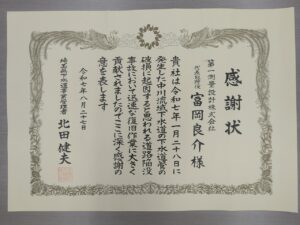 感謝状
第一測量設計株式会社
代表取締役 富岡良介様
貴社は令和七年一月二十八日に
発生した中川流域下水道の下水道管の
破損に起因すると思われる道路陥没
事故において迅速な復旧作業に大きく
貢献されましたのでここに深く感謝の
意を表します
令和七年八月二十七日
埼玉県下水道事業管理者 北田健夫